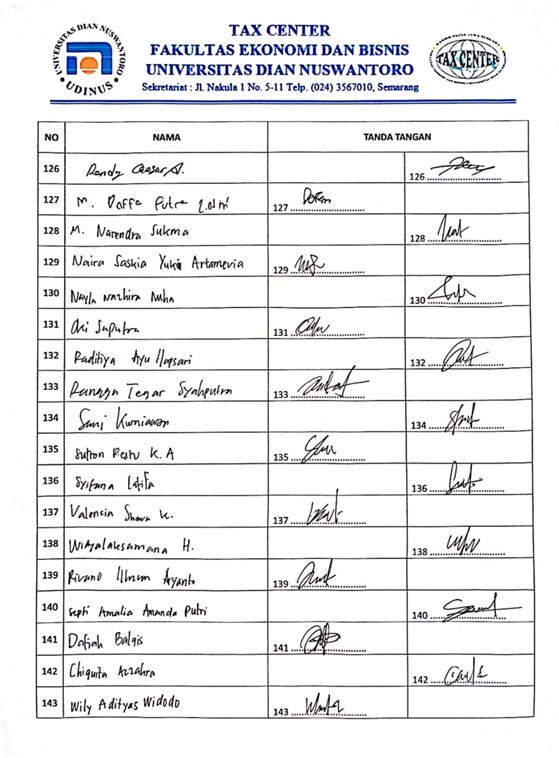 TAX CENTER
FAKULTAS EKONOMI DAN BISNIS
UNIVERSITAS DIAN NUSWANTORO
Sekretariat : Jl. Nakula 1 No. 5-11 Telp. (024) 3567010, Semarang
UNIVERSITAS DIAN NUSWANTORO
UDINUS
TAX CENTER
NO NAMA TANDA TANGAN
126 Dandy Caesar A. 126
127 M. Daffa Putra 127
128 M. Narendra Sukma 128
129 Naira Saskia Yukia Artamevia 129
130 Nayla Nazhira Nuha 130
131 Oki Saputra 131
132 Raditiya Ayu Hapsari 132
133 Tegar Syahputra 133
134 Kurniawan 134
135 Restu K. A 135
136 Syifana Latifa 136
137 Valencia K. 137
138 Widyalaksamana H. 138
139 Rivano Aryanto 139
140 Septi Amalia Ananda Putri 140
141 Dafiah Balqis 141
142 Chiquita Azzahra 142
143 Wily Adityas Widodo 143